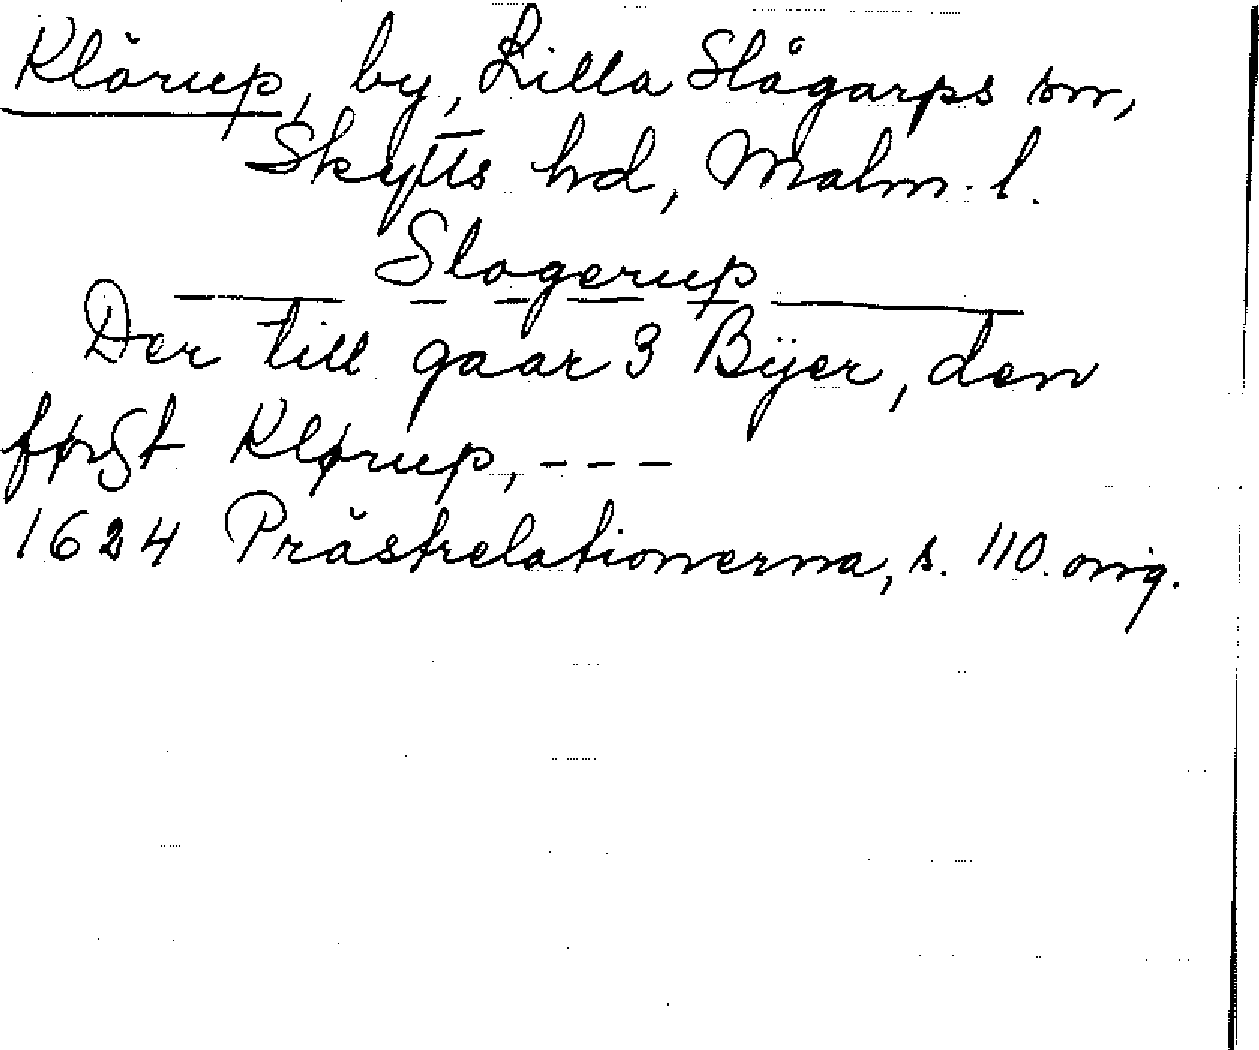 Klörup, by, Lilla Slågarps sn,
Skytts hd, Malm. l.
Slogerup
Der till gaar 3 Bÿer, den
først Klørup, ---
1624 Prästrelationerna, s. 110. orig.